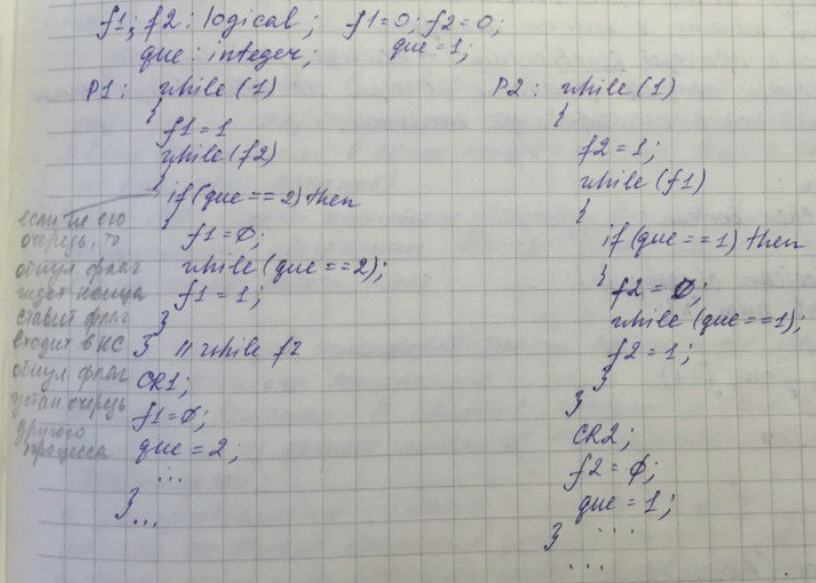 f1; f2 : logical; f1=0; f2=0;
que : integer; que=1;
P1: while(1)
{
f1=1
while(f2)
{
if(que==2)then
{
f1=0;
while(que==2);
f1=1;
}
} // while f2
CR1;
f1=0;
que=2;
...
}...
если не его
очередь, то
обнул. флаг
ждет конца
ставит флаг
входит в КС
обнул. флаг
устан очередь
другого
процесса
P2: while(1)
{
f2=1;
while(f1)
{
if(que==1) then
{
f2=0;
while(que==1);
f2=1;
}
}
CR2;
f2=0;
que=1;
} ...
...